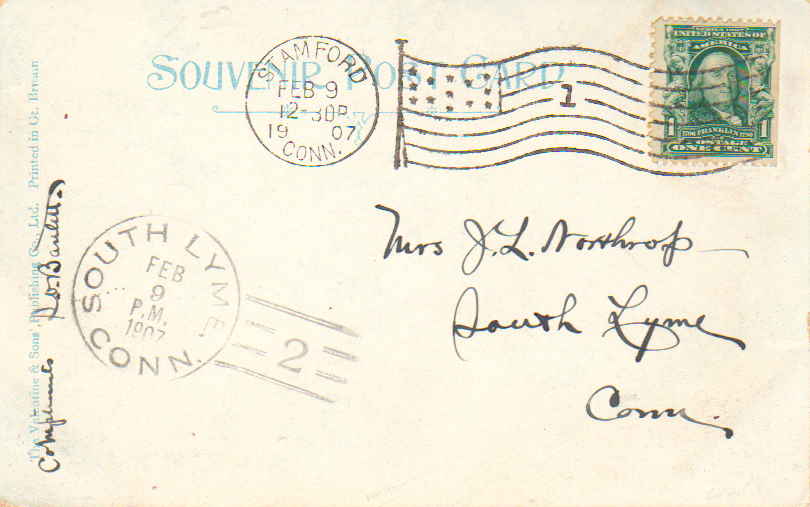 SOUVENIR POST CARD
STAMFORD
FEB 9
12-30P
19 07
CONN.
1
UNITED STATES OF
AMERICA
1 1
1706 FRANKLIN 1790
POSTAGE
ONE CENT
Mrs J. L. Northrop
South Lyme
Conn.
SOUTH LYME
FEB
9
P.M.
1907
CONN.
2
The Valentine & Sons' Publishing Co., Ltd. Printed in Gt. Britain
Compliments Bartlett